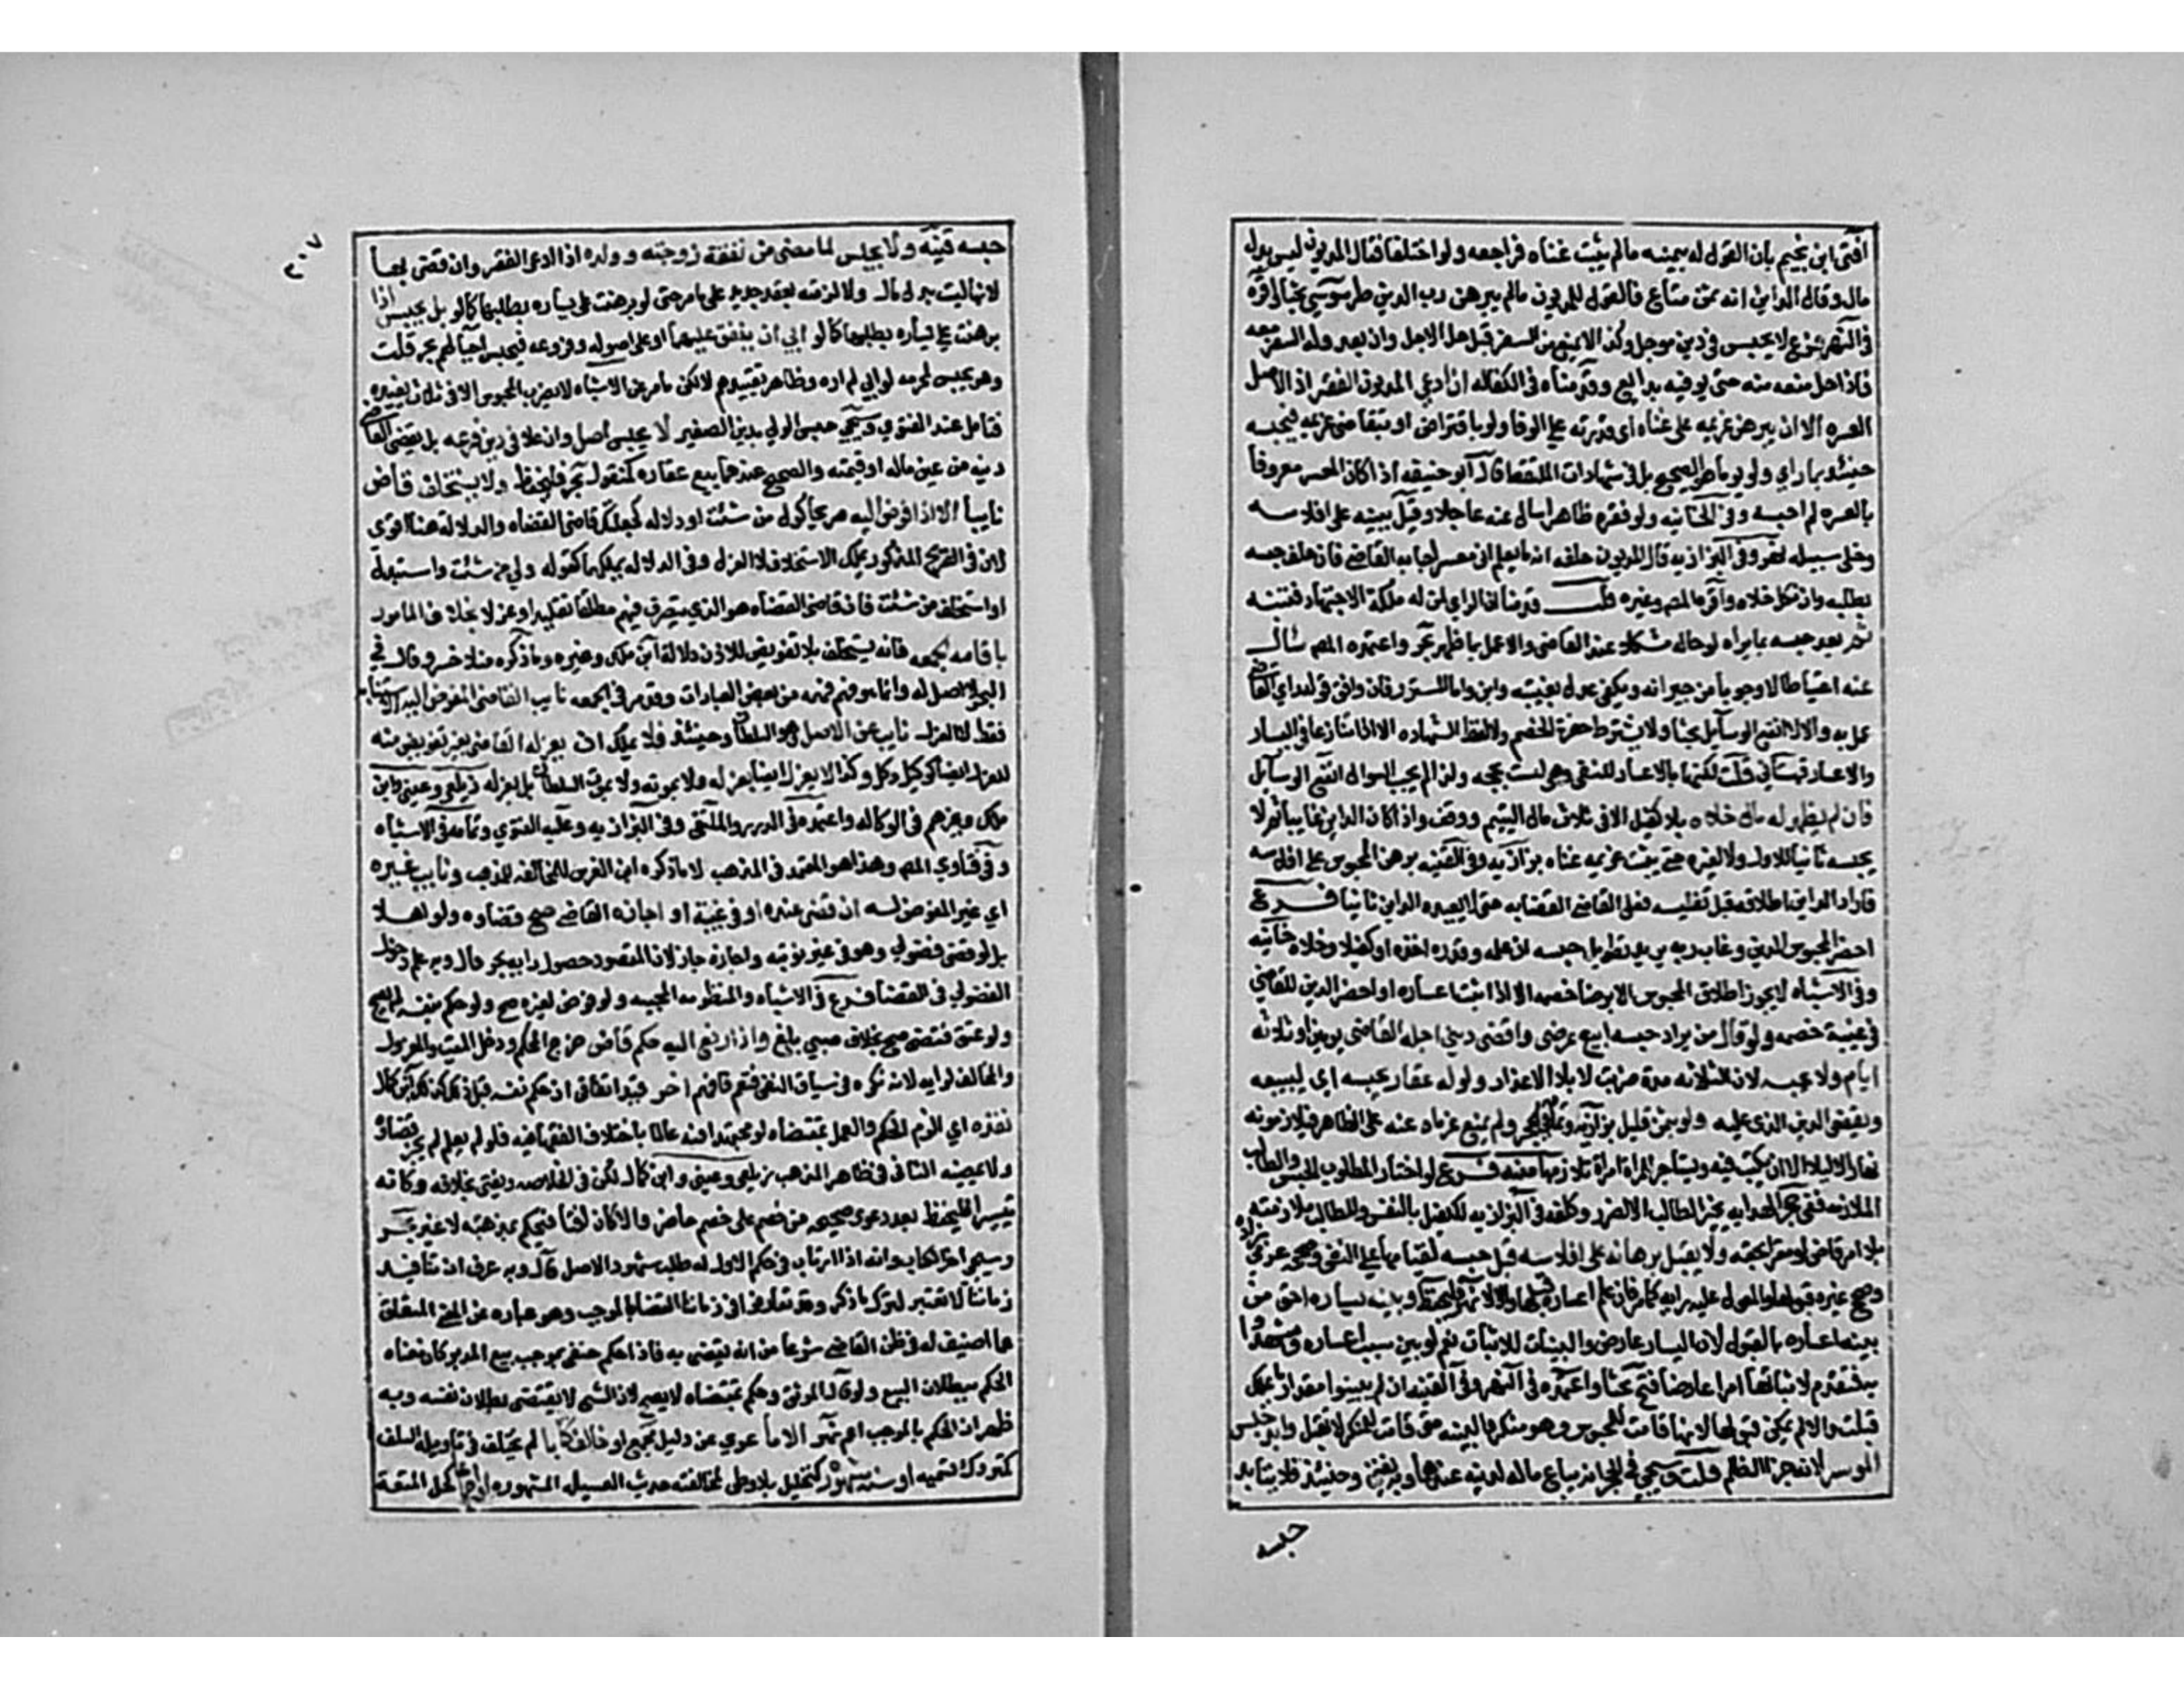 افتى ابن نجيم بان القول له بيمينه مالم يثبت غناه فراجعه ولو اختلفا فقال المديون ليس بدل
مال وقال الداين انه ثمن متاع فالقول للمديون مالم يبرهن رب الدين طرسوسي بحثا واقره
في النهر فرع لا يحبس في دين موجل وكذا لا يمنع من السفر قبل حل الاجل وان بعد وله السفر معه
فاذا حل منعه منه حتى يوفيه بدايع وقدمناه في الكفاله ان ادعي المديون الفقر اذ الاصل
العسره الا ان يبرهن غريمه على غناه اى قدرته علي الوفا ولو باقتراض او بتقاضي غريمه فيحبسه
حينئذ بما راي ولو يوما هو الصحيح بل في شهادات الملتقط قال ابو حنيفه اذا كان المعسر معروفا
بالعسره لم احبسه وفي الخانيه ولو فقره ظاهرا سال عنه عاجلا وقبل بينته على افلاسه
وخلى سبيله نهر وفي البزازيه قال المديون حلفه انه ما يعلم اني معسر اجابه القاضي فان حلف حبسه
بطلبه وان نكل خلاه واقره المص وغيره قلت قدمنا ان الراي لمن له ملكة الاجتهاد فتنبه
ثم بعد حبسه بما يراه لو حاله مشكلا عند القاضي والا عمل بما ظهر بحر واعتمده المص سال
عنه احتياطا لا وجوبا من جيرانه ويكفي عدل بغيبة داين واما المستور فان وافق قوله راي القاضي
عمل به والا لا انفع الوسائل بحثا ولا يشترط حضرة الخصم ولا لفظ الشهاده الا اذا تنازعا في اليسار
والاعسار قهستاني قلت لكنها بالاعسار للنفي وهي ليست بحجه ولذا لم يجب السوال انفع الوسايل
فان لم يظهر له مال خلاه بلا كفيل الا في ثلاث مال اليتيم ووقف واذا كان الداين غايبا ثم لا
يحبسه ثانيا للاول ولا لغيره حتى يثبت غريمه غناه بزازيه وفي القنيه برهن المحبوس على افلاسه
فاراد الداين اطلاقه قبل تفليسه فعلى القاضي القضا به حتى لا يعيده الداين ثانيا فرع
احضر المحبوس الدين وغاب ربه يريد تطويل حبسه ان علمه وقدره اخذه او كفيلا وخلاه خانيه
وفي الاشباه لا يجوز اطلاق المحبوس الا برضا خصمه الا اذا اثبت اعساره او احضر الدين للقاضي
في غيبة خصمه ولو قال من يراد حبسه ابيع عرضي واقضي ديني اجله القاضي يومين او ثلاثه
ايام ولا يحبسه لان الثلاثه مدة ضربت لابلا الاعذار ولو له عقار يحبسه اي ليبيعه
ويقضي الدين الذى عليه ولو بثمن قليل بزازيه ولم يمنع غرماه عنه على الظاهر فيلازمونه
نهارا لا ليلا الا ان يكتسب فيه ويستاجر للمراة امراة تلازمها منيه فرع لو اختار المطلوب الحبس والطالب
الملازمه ففي حجر الهدايه يخير الطالب الا لضرر وكلفه في البزازيه لكفيل بالنفس وللطالب ملازمته
بلا امر قاض لو مقرا بحقه ولا يقبل برهانه على افلاسه قبل حبسه لقيامها علي النفي وصححه عزمي زاده
وصحح غيره قبولها والمعول عليه رايه كما مر فان علم اعساره قبلها والا لا نهر فليحفظ وبينه يساره احق من
بينه اعساره بالقبول لان اليسار عارض والبينات للاثبات نعم لو بين سبب اعساره وشهدوا
به فتقدم لاثباتها امرا عارضا فتح بحثا واعتمده في النهر وفي القنيه ان لم يبينوا مقدار ما يملك
قبلت والا لم يمكن قبولها لانها قامت للمحبوس وهو منكر والبينه متى قامت للمنكر لا تقبل وابد حبس
الموسر لانه جزا الظلم قلت وسيجي في الحجر انه يباع ماله لدينه عندهما وبه يفتى وحينئذ فلا يتابد
حبسه
٣٠٧
حبسه قنيه ولا يحبس لما مضى من نفقة زوجته وولده اذا ادعى الفقر وان قضي بها
لانها ليست بدل مال ولا لزمته بعقد جديد على ما مر حتى لو برهنت على يساره بطلبها كما لو بل يحبس اذا
برهنت علي يساره بطلبها كما لو ابى ان ينفق عليهما او على اصوله وفروعه فيحبس احيا لهم بحر قلت
وهو يحبس لمحرمه لو ابى لم اره وظاهر تقييدهم لا لكن ما مر عن الاشباه لا يضرب المحبوس الا في ثلاث يفيده
فتامل عند الفتوي وسيجي حبس الولي بدين الصغير لا يحبس اصل وان علا في دين فرعه بل يقضى القاضي
دينه من عين ماله او قيمته والصحيح عندهما بيع عقاره كمنقوله بحر فليحفظ ولا يستخلف قاض
نايبا الا اذا فوض اليه صريحا كول من شئت او دلاله كجعلتك قاضي القضاه والدلالة هنا اقوى
لان في الصريح المذكور يملك الاستخلاف لا العزل وفي الدلاله يملكهما كقوله ول من شئت واستبدل
او استخلف من شئت فان قاضي القضاه هو الذي يتصرف فيهم مطلقا تقليدا وعزلا بخلاف المامور
باقامه الجمعه فانه يستخلف بلا تفويض للاذن دلالة ابن ملك وغيره وما ذكره منلا خسرو قال في
البحر لا اصل له وانما هو فهم فهمه من بعض العبارات وقد مر في الجمعه نايب القاضي المفوض اليه الاستنابه
فقط لا العزل نايب عن الاصل وهو السلطان وحينئذ فلا يملك ان يعزله القاضي بغير تفويض منه
للعزل ايضا كوكيل وكل وكذا لا ينعزل ايضا بعزله ولا بموته ولا بموت السلطان بل بعزله زيلعي وعيني وابن
ملك وغيرهم في الوكاله واعتمده في الدرر والملتقى وفي البزازيه وعليه الفتوي وتمامه في الاشباه
وفي فتاوي المص وهذا هو المعتمد في المذهب لا ما ذكره ابن الغرس لمخالفته للمذهب ونايب غيره
اي غير المفوض له ان قضى عنده او في غيبة او اجازه القاضي صح قضاوه ولو اهلا
بل لو قضى فضولي وهو في غير نوبته واجازه جاز لان المقصود حصول رايه بحر قال وبه علم دخول
الفضولي في القضا فرع في الاشباه والمنظومه المحبيه ولو فوض لغيره صح ولو حكم بنفسه لم يصح
ولو عتق فقضى صح بخلاف صبي بلغ واذا رفع اليه حكم قاض خرج المحكم ودخل الميت والمعزول
والمخالف لرايه لانه نكره في سياق النفي فتعم قاض اخر قيد اتفاقي اذ حكم نفسه قبل ذلك كذلك ابن كمال
نفذه اي الزم الحكم والعمل بمقتضاه لو مجتهدا فيه عالما باختلاف الفقها فيه فلو لم يعلم لم يجز قضاوه
ولا يمضيه الثاني في ظاهر المذهب زيلعي وعيني وابن كمال لكن في الخلاصه ويفتى بخلافه وكانه
تيسيرا فليحفظ بعد دعوى صحيحه من خصم على خصم حاضر والا كان افتا فيحكم بمذهبه لا غير بحر
وسيجي اخر الكتاب وانه اذا ارتاب في حكم الاول له طلب شهود الاصل قال وبه عرف ان تنافيذ
زماننا لا تعتبر لترك ما ذكر وقد تعارفوا في زماننا القضا بالموجب وهو عباره عن المعنى المتعلق
بما اضيف له في ظن القاضي شرعا من انه يقضى به فاذا حكم حنفي بموجب بيع المدبر كان معناه
الحكم ببطلان البيع ولو قال الموثق وحكم بمقتضاه لا يصح لان الشي لا يقتضي بطلان نفسه وبه
ظهر ان الحكم بالموجب اعم نهر الا ما عري عن دليل مجمع او خالف كتابا لم يختلف في تاويله السلف
كمتروك تسميه او سنه مشهوره كتحليل بلا وطى لمخالفته حديث العسيله المشهوره او اجماعا كحل المتعة